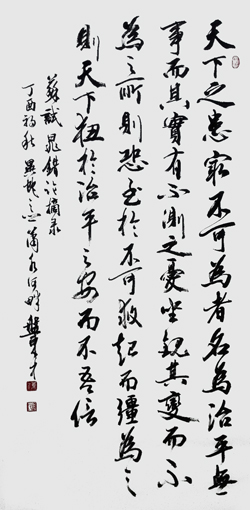 天下之患冣不可為者名為治平無
事而其實有不測之憂坐觀其變而不
為之所則恐至於不可救起而彊為之
則天下狃於治平之安而不吾信
蘇軾晁錯論摘录
丁酉初秋 瀟水河畔龔